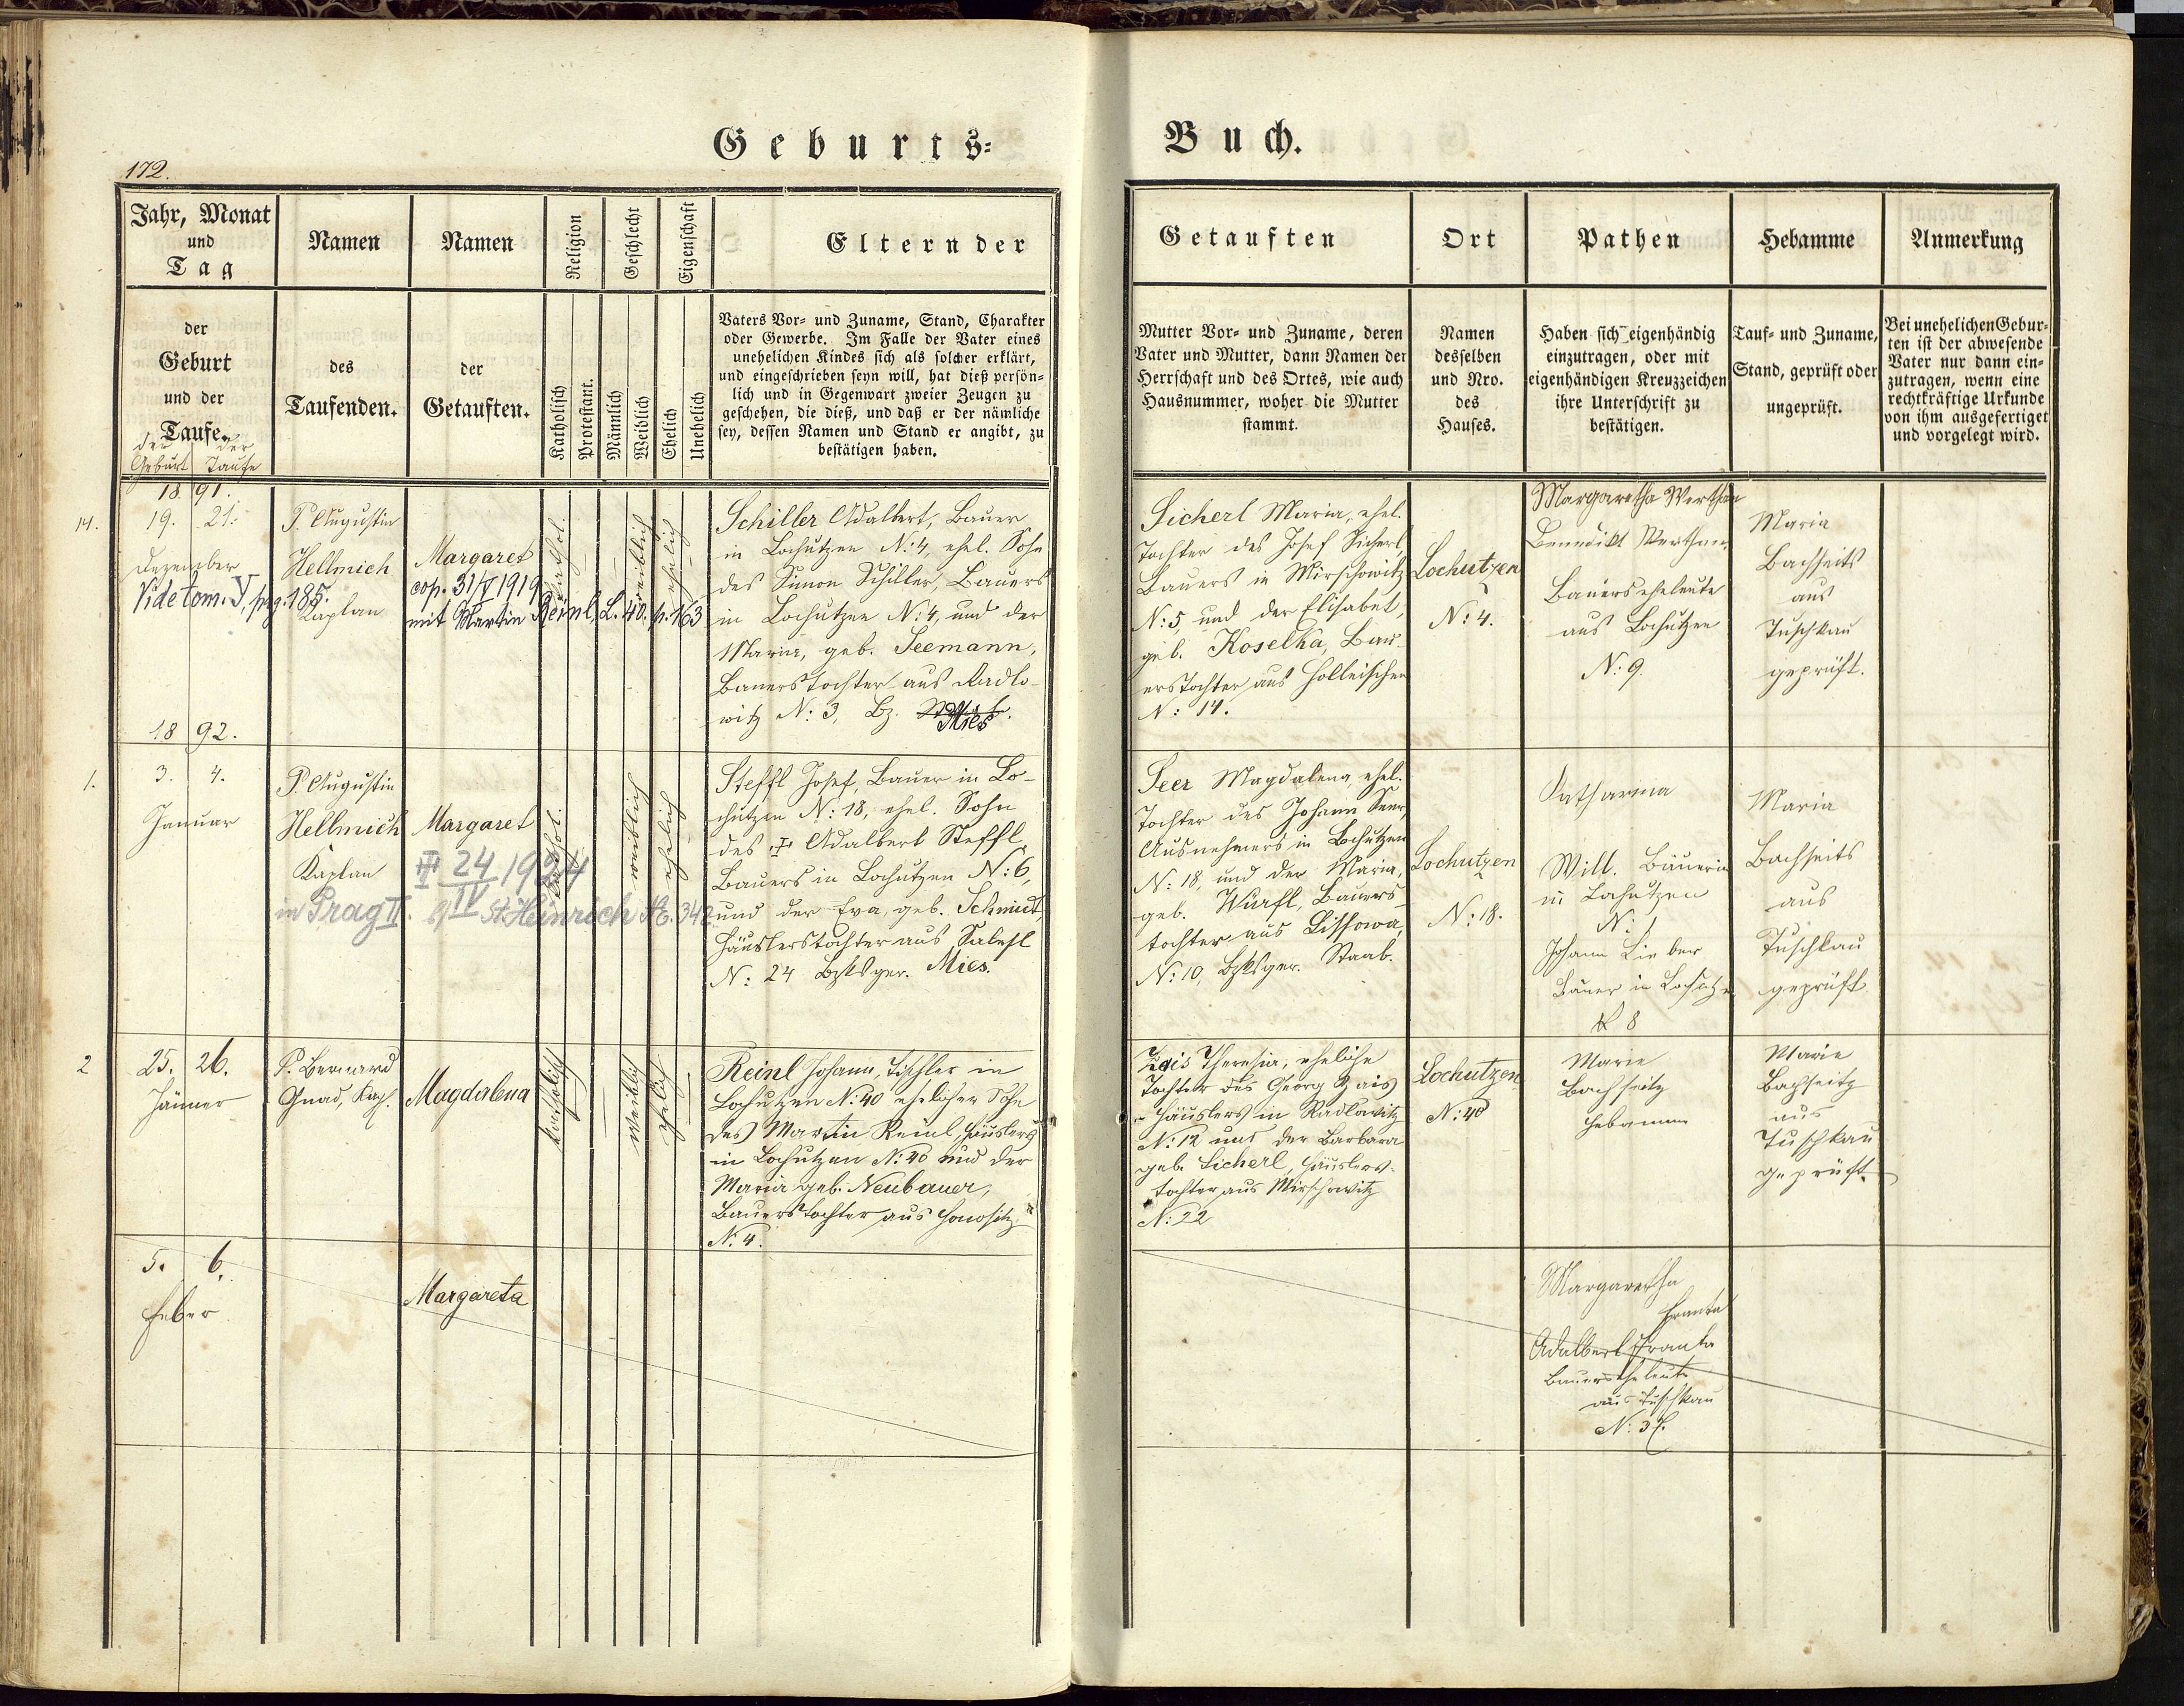 Geburts=
Buch.
172.
Jahr, Monat
und
Tag
Namen
Namen
Religion
Geschlecht
Eigenschaft
Eltern der
der
Geburt
und der
Taufe.
des
Taufenden.
der
Getauften.
Katholisch
Protestant.
Männlich
Weiblich
Ehelich
Unehelich
Vaters Vor- und Zuname, Stand, Charakter
oder Gewerbe. Im Falle der Vater eines
unehelichen Kindes sich als solcher erklärt,
und eingeschrieben seyn will, hat dieß persön-
lich und in Gegenwart zweier Zeugen zu
geschehen, die dieß, und daß er der nämliche
sey, dessen Namen und Stand er angibt, zu
bestätigen haben.
der der
Geburt Taufe
Getauften
Ort
Pathen
Hebamme
Anmerkung
Mutter Vor- und Zuname, deren
Vater und Mutter, dann Namen der
Herrschaft und des Ortes, wie auch
Hausnummer, woher die Mutter
stammt.
Namen
desselben
und Nro.
des
Hauses.
Haben sich eigenhändig
einzutragen, oder mit
eigenhändigen Kreuzzeichen
ihre Unterschrift zu
bestätigen.
Tauf- und Zuname,
Stand, geprüft oder
ungeprüft.
Bei unehelichen Gebur-
ten ist der abwesende
Vater nur dann ein-
zutragen, wenn eine
rechtkräftige Urkunde
von ihm ausgefertiget
und vorgelegt wird.
1891.
14.
19. 21.
Dezember
Vide tom. V, pag. 185.
P. Augustin
Hellmich
Kaplan
Margaret
cop. 31/V 1919
mit Martin Reinl, L. 40. p. 163
kathol.
weiblich
ehelich
Schiller Adalbert, Bauer
in Lochutzen N: 4, ehel. Sohn
des Simon Schiller, Bauers
in Lochutzen N: 4, und der
Maria, geb. Seemann,
Bauerstochter aus Radlo-
witz N: 3, Bz. Mies
Sicherl Maria, ehel.
Tochter des Josef Sicherl,
Bauers in Mirschowitz
N: 5 und der Elisabet,
geb. Koselka, Bau-
erstochter aus Holleischen
N: 14.
Lochutzen
N: 4.
Margaretha Werthan
Benedikt Werthan
Bauerseheleute
aus Lochutzen
N: 9.
Maria
Bachseits
aus
Tuschkau
geprüft.
1892.
1.
3. 4.
Januar
P. Augustin
Hellmich
Kaplan
Margaret
24/IV 1924
in Prag II. St. Heinrich N. 342
kathol.
weiblich
ehelich
Steffl Josef, Bauer in Lo-
chutzen N: 18, ehel. Sohn
des † Adalbert Steffl,
Bauers in Lochutzen N: 6,
und der Eva, geb. Schmidt,
Häuslerstochter aus Salesl
N: 24 Bzksger. Mies.
Seer Magdalena, ehel.
Tochter des Johann Seer,
Ausnehmers in Lochutzen
N: 18, und der Maria,
geb. Würfl, Bauers-
tochter aus Lissowa,
N: 10, Bzksger. Staab.
Lochutzen
N: 18.
Katharina
Will. Bäuerin
in Lochutzen
N: 1
Johann Lieber
Bauer in Lochutzen
N 8
Maria
Bachseits
aus
Tuschkau
geprüft
2
25. 26.
Jänner
P. Bernard
Gnad, Kap.
Magdalena
katholisch
weiblich
ehelich
Reinl Johann, Tischler in
Lochutzen N: 40 ehelicher Sohn
des Martin Reinl, Häuslers
in Lochutzen N: 40 und der
Maria geb. Neubauer,
Bauerstochter aus Honositz
N: 4.
Zais Theresia, eheliche
Tochter des Georg Zais
Häuslers in Radlowitz
N: 12 und der Barbara
geb. Sicherl, Häuslers-
tochter aus Mirschowitz
N: 22
Lochutzen
N: 40
Marie
Bachseitz
Hebamme
Marie
Bachseitz
aus
Tuschkau
geprüft.
5. 6.
Feber
Margareta
Margaretha
Franta
Adalbert Franta
Bauerseheleute
aus Tuschkau